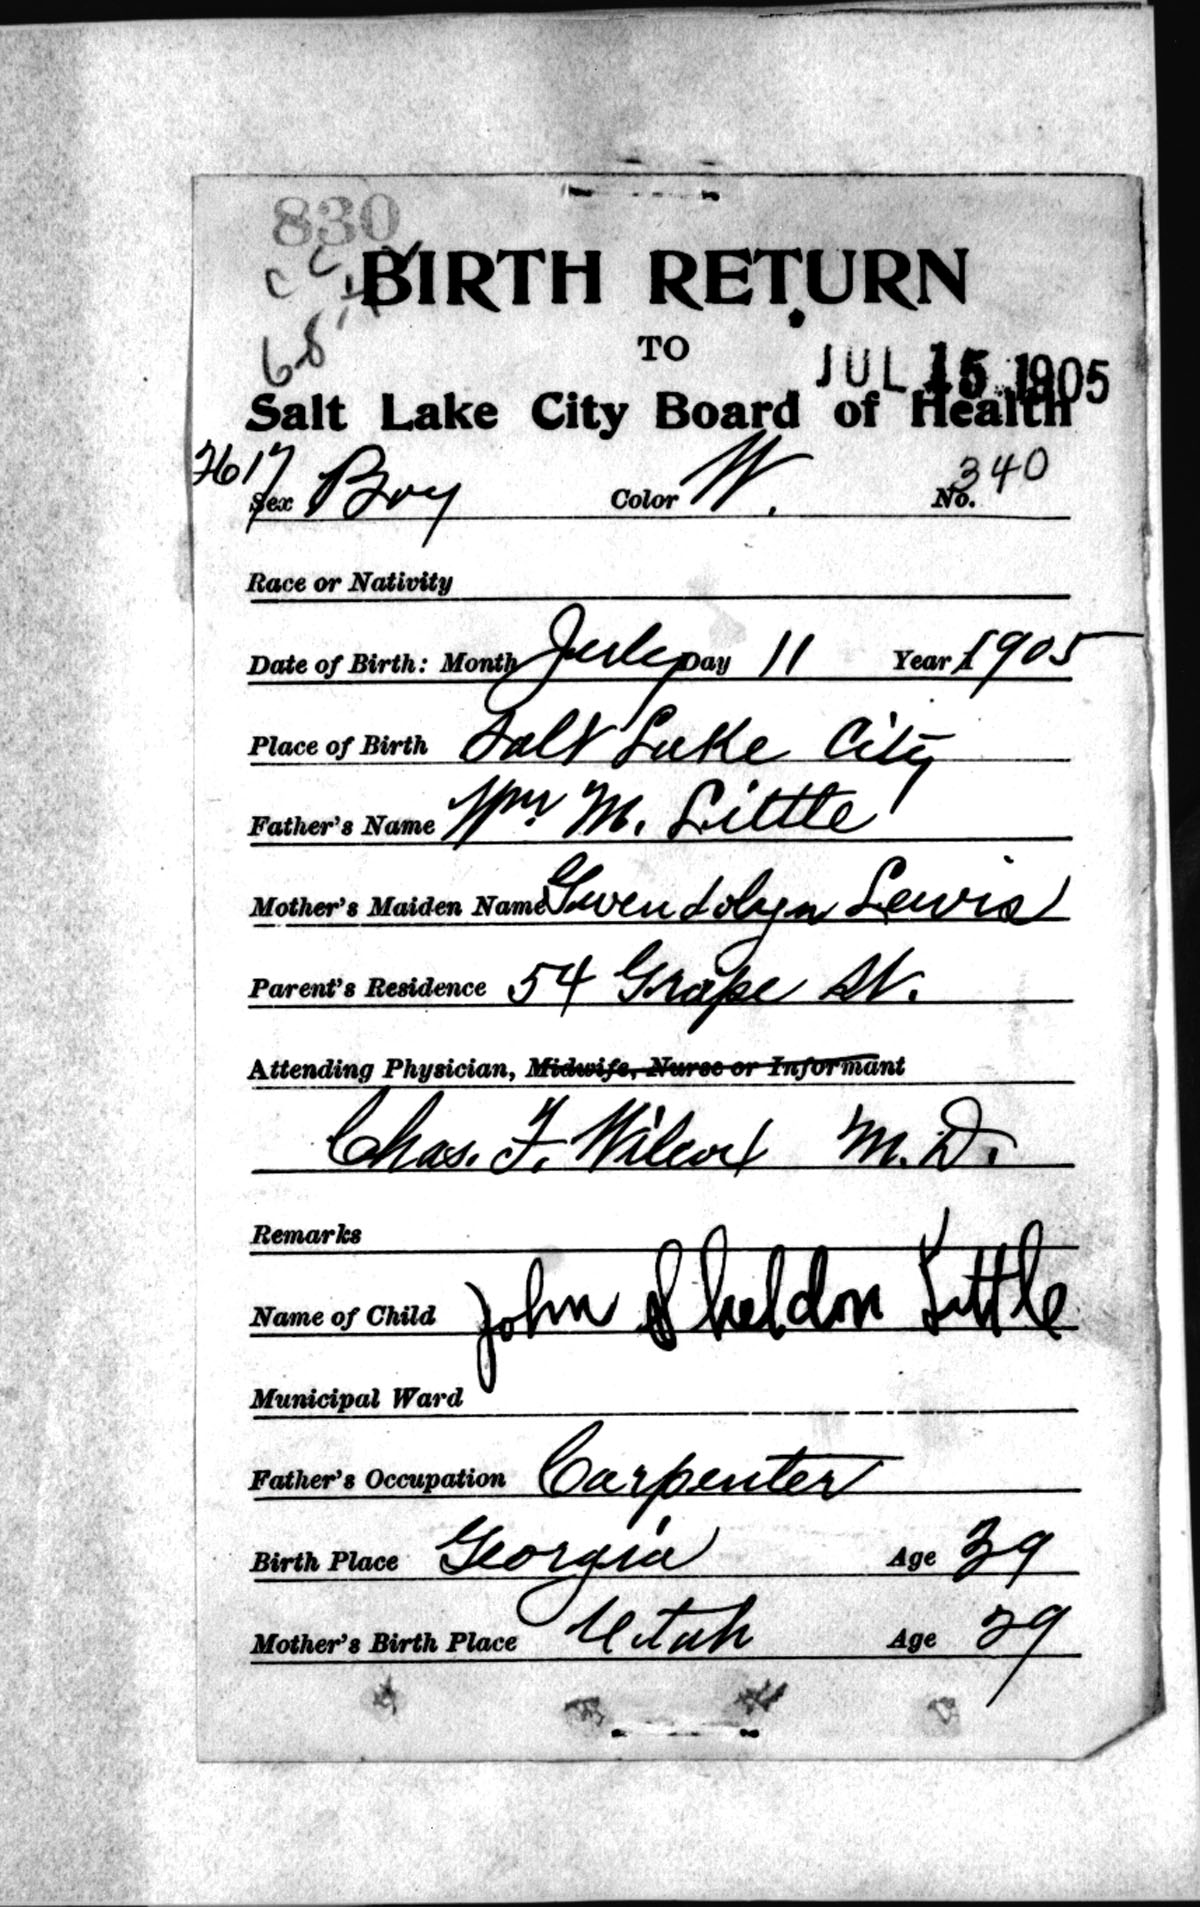 830
BIRTH RETURN
TO
68
JUL 15 1905
Salt Lake City Board of Health
2617 340
Sex Boy Color W. No.
Race or Nativity
Date of Birth: Month July Day 11 Year 1905
Place of Birth Salt Lake City
Father's Name Wm M. Little
Mother's Maiden Name Gwendolyn Lewis
Parent's Residence 54 Grape St.
Attending Physician, Midwife, Nurse or Informant
Chas. F. Wilcox M.D.
Remarks
Name of Child John Sheldon Little
Municipal Ward
Father's Occupation Carpenter
Birth Place Georgia Age 39
Mother's Birth Place Utah Age 29